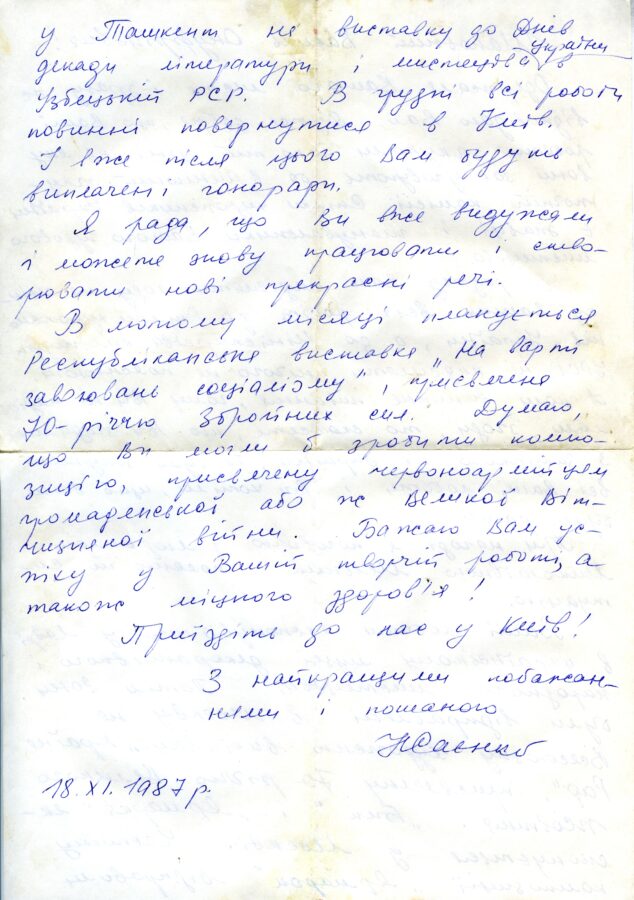 у Ташкент на виставку до Днів
України
декади літератури і мистецтва в
Узбецькій РСР. В грудні всі роботи
повинні повернутися в Київ.
І вже після цього Вам будуть
виплачені гонорари.
Я рада, що Ви вже видужали
і можете знову працювати і ство-
рювати нові прекрасні речі.
В лютому місяці планується
Республіканська виставка „На варті
завоювань соціалізму", присвячена
70-річчю Збройних сил. Думаю,
що Ви могли б зробити компо-
зицію, присвячену червоноармійцям
громадянської або ж Великої Віт-
чизняної війни. Бажаю Вам ус-
піху у Вашій творчій роботі, а
також міцного здоров'я!
Приїздіть до нас у Київ!
З найкращими побажан-
нями і пошаною
НСаєнко
18.XI.1987 р.